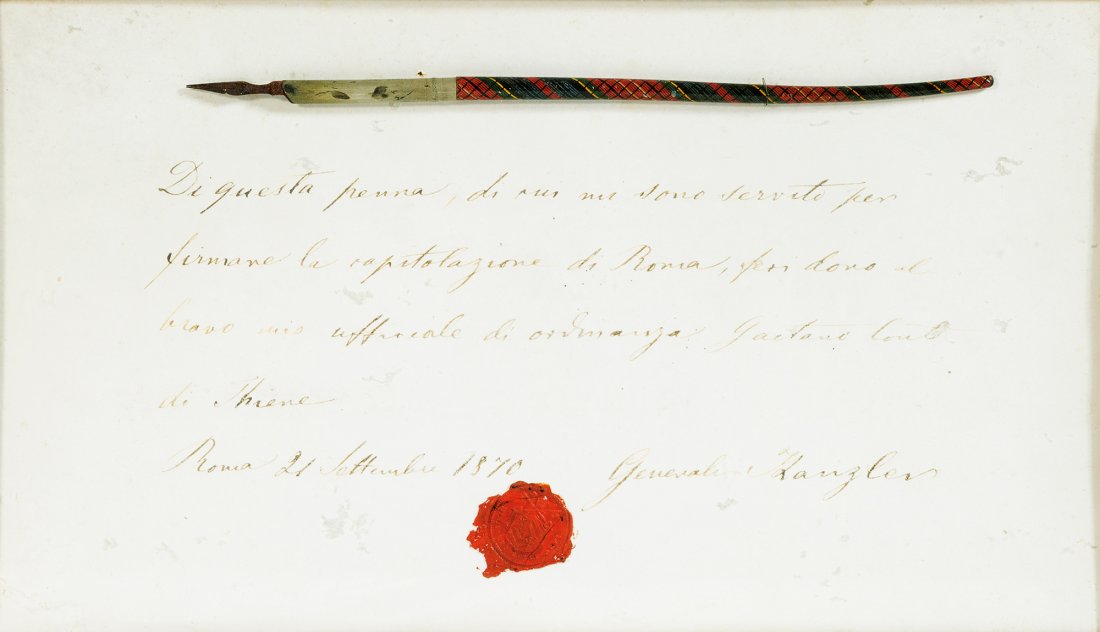 Di questa penna, di cui mi sono servito per
firmare la capitolazione di Roma, feci dono al
bravo mio ufficiale di ordinanza Gaetano Conte
di Thiene
Roma 21 Settembre 1870 Generale Kanzler